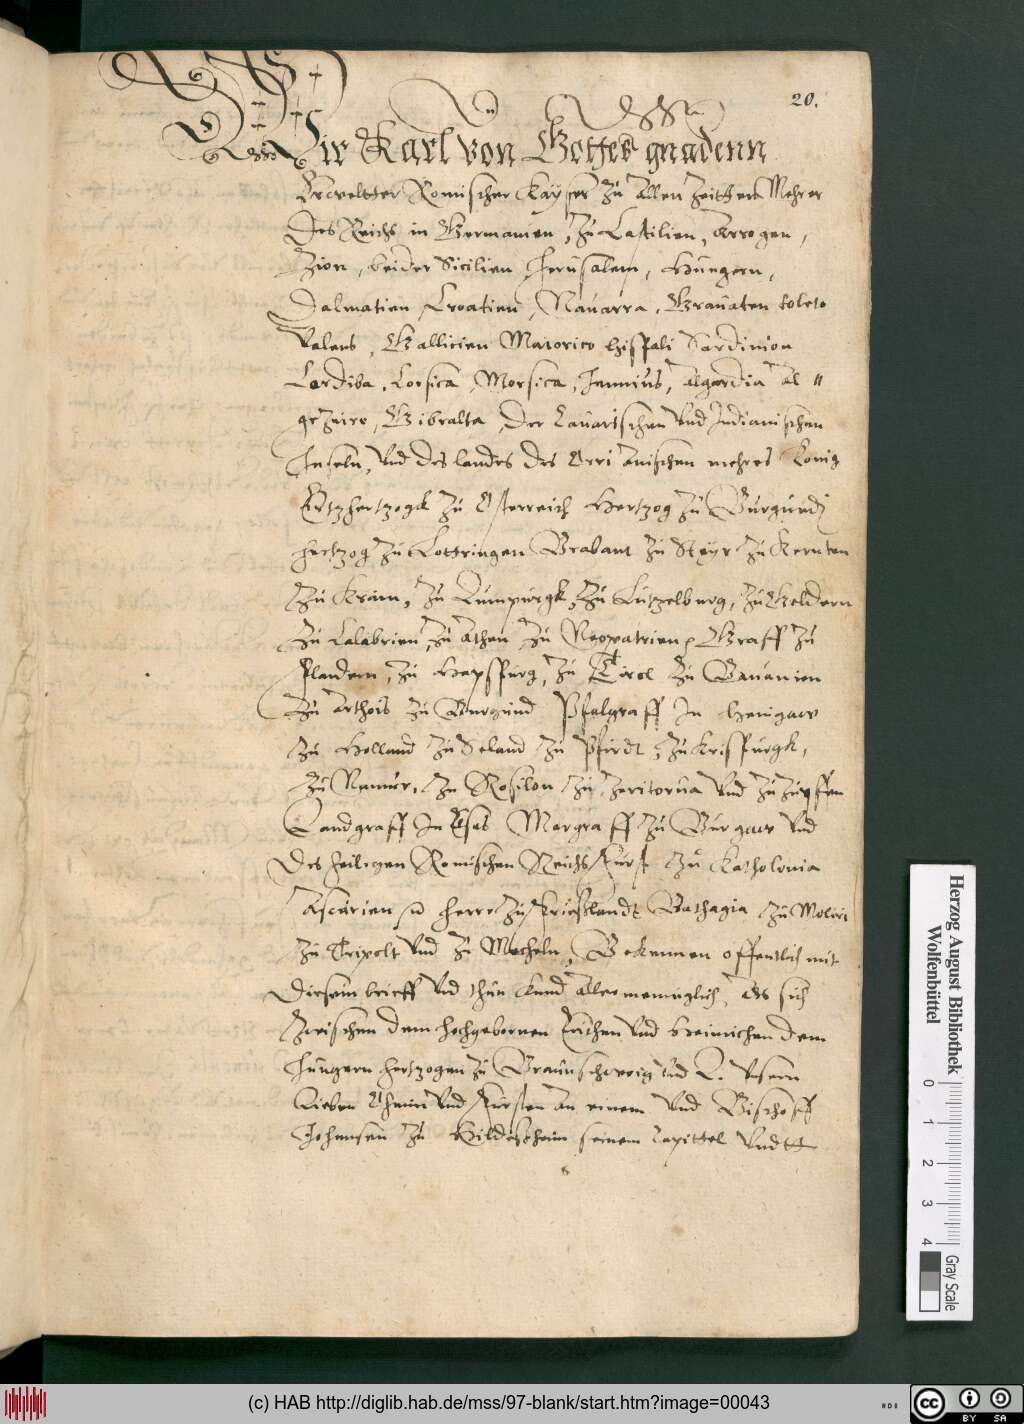 20.
Wir Karl von Gottes gnadenn
Erwelter Romischer Kayser zu allen zeitten Mehrer
des Reichs in Germanien, zu Castilien, Arrogon,
Zion, beider Sicilien Jerusalem, Hungern,
Dalmatien, Croatien, Navarra, Granaten toleto
Valens, Gallicien Maiorico hispali Sardinion
Cordiba, Corsica, Morsica, Jennius, Algardia Al〃
gezaire, Gibralta, der Canarischen Und Indianischen
Inseln, Und des landes des Occi anischen mehres Konig
Ertzhertzogk zu Osterreich Hertzog zu Burgundj
hertzog zu Lottringen Brabant zu Steyr zu Kernten
zu Krain, zu Lumpurgk, zu Lutzelburg, zu Geldern
zu Calabrien, zu Athen, zu Neopatrien, Graff zu
flandern, zu Hapspurg, zu Tirol zu
zu Arthois zu Burgund Pfalgraff In Henigaw
zu Holland zu Seland zu Pfirdt, zu
zu Namur, zu Rosilon zu Zeritonia Und zu Zupffen
Landgraff In Elsas Margraff zu Burgaw Und
des heiligen Romischen Reichs Furst zu Katholonia
Asturien herr zu Frießlandt zu
zu Tripolt Und zu Mecheln, Bekennen offentlich mit
diesem brieff Und thun kund allermenniglich, Als sich
Zwischen dem hochgebornen Erichen Und Heinrichen dem
Jungern hertzogen zu Braunschweig Und L. Unsern
lieben Ohmen Und Fursten an einem Und Bischoff
Johansen zu Hildesheim seinem Capittel Undtt
Herzog August Bibliothek
Wolfenbüttel
0 1 2 3 4
Gray Scale
(c) HAB http://diglib.hab.de/mss/97-blank/start.htm?image=00043
cc BY SA